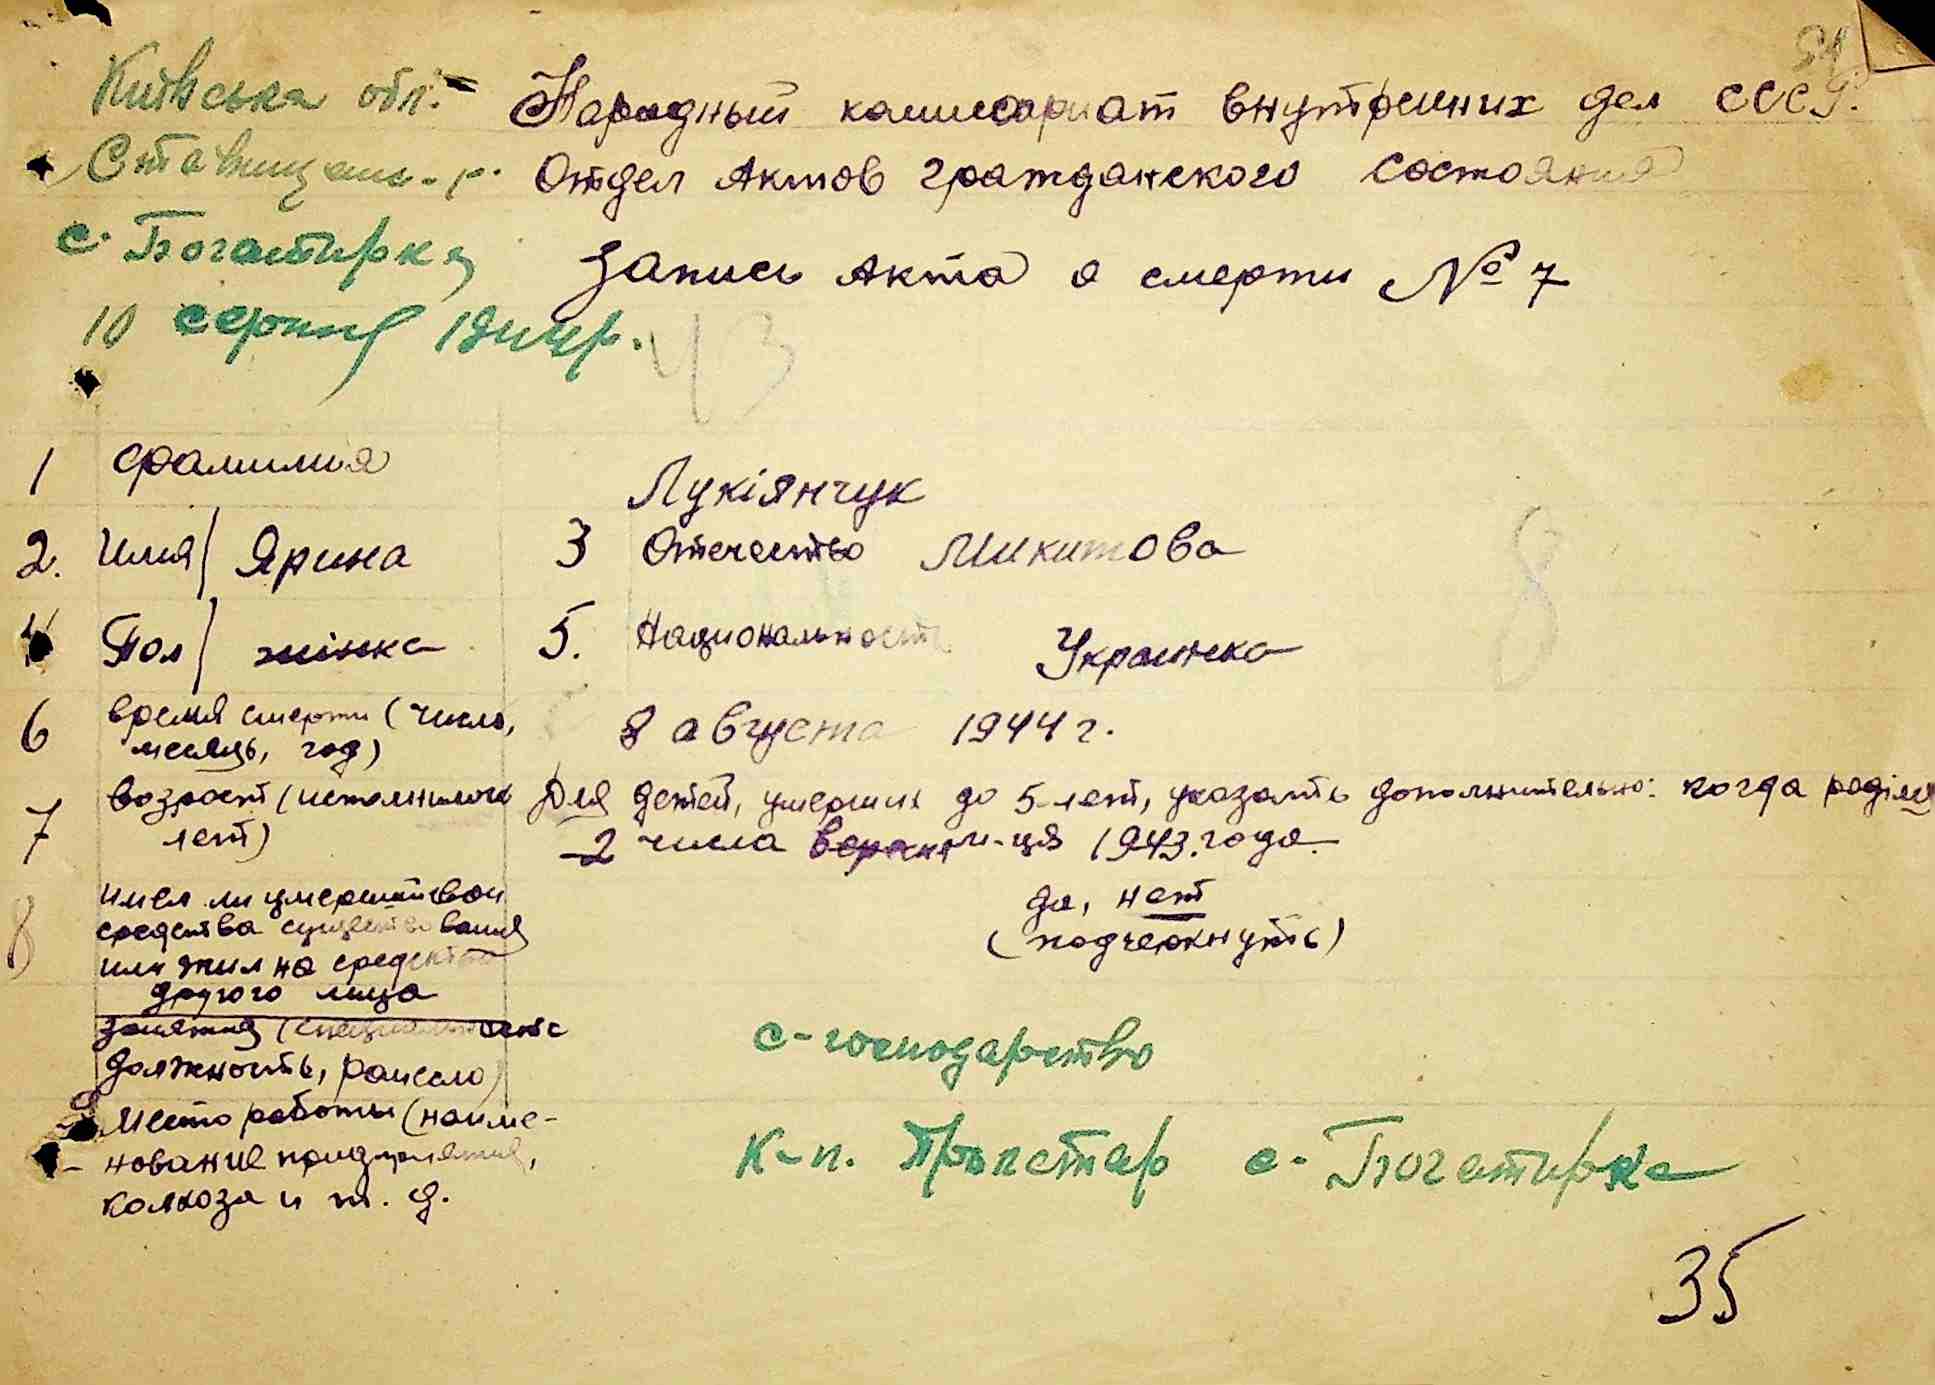 Київська обл.
Ставищанс. р.
с. Богатирка
10 серпня 1944 р.
Народный комиссариат внутренних дел СССР.
Отдел Актов гражданского состояния
Запись Акта о смерти № 7
43
1 Фамилия Лукіянчук
2. Имя/ Ярина 3 Отечество Микитова
4 Пол/ жінка 5. Национальность Украинка
8
6 время смерти (число, месяць, год) 8 августа 1944 г.
7 возраст (исполнилось лет) Для детей, умерших до 5-лет, указать дополнительно: когда
2 числа м-ця 1943. года.
8 имел ли умерший свои
средства существования
или жил на средства
другого лица
да, нет
(подчеркнуть)
занятия (специальность
должность, ремесло) с-господарство
9 Место работы (наиме-
нование предприятия,
колхоза и т. д. с. Богатирка
35